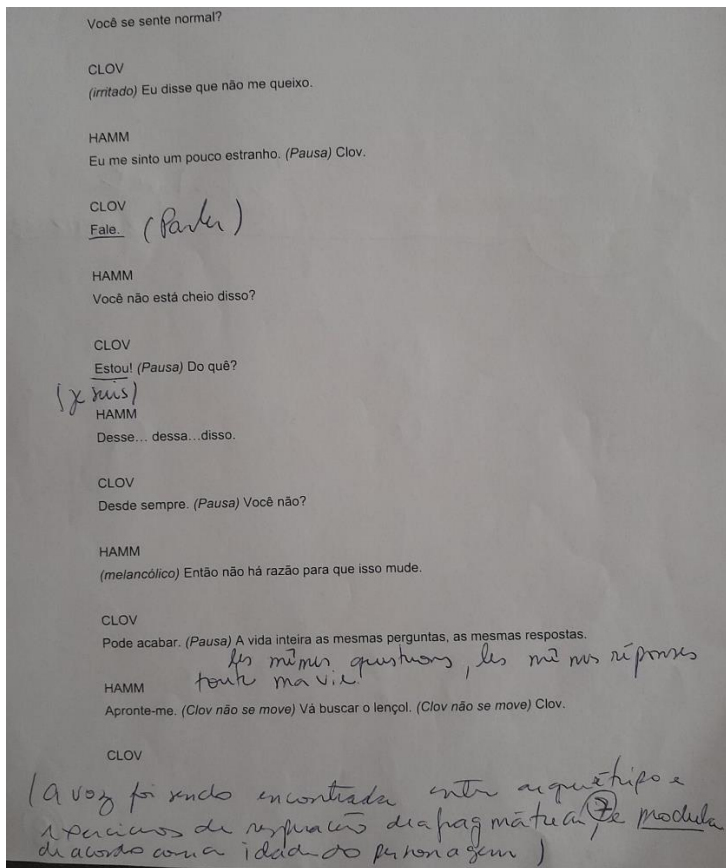 Você se sente normal?
CLOV
(irritado) Eu disse que não me queixo.
HAMM
Eu me sinto um pouco estranho. (Pausa) Clov.
CLOV
Fale. (Parler)
HAMM
Você não está cheio disso?
CLOV
Estou! (Pausa) Do quê?
(je suis)
HAMM
Desse... dessa...disso.
CLOV
Desde sempre. (Pausa) Você não?
HAMM
(melancólico) Então não há razão para que isso mude.
CLOV
Pode acabar. (Pausa) A vida inteira as mesmas perguntas, as mesmas respostas.
les mêmes questions, les mêmes réponses
toute ma vie.
HAMM
Apronte-me. (Clov não se move) Vá buscar o lençol. (Clov não se move) Clov.
CLOV
(A voz foi sendo encontrada entre arquétipo e
exercícios de respiração diafragmática, e modula
de acordo com a idade do personagem)